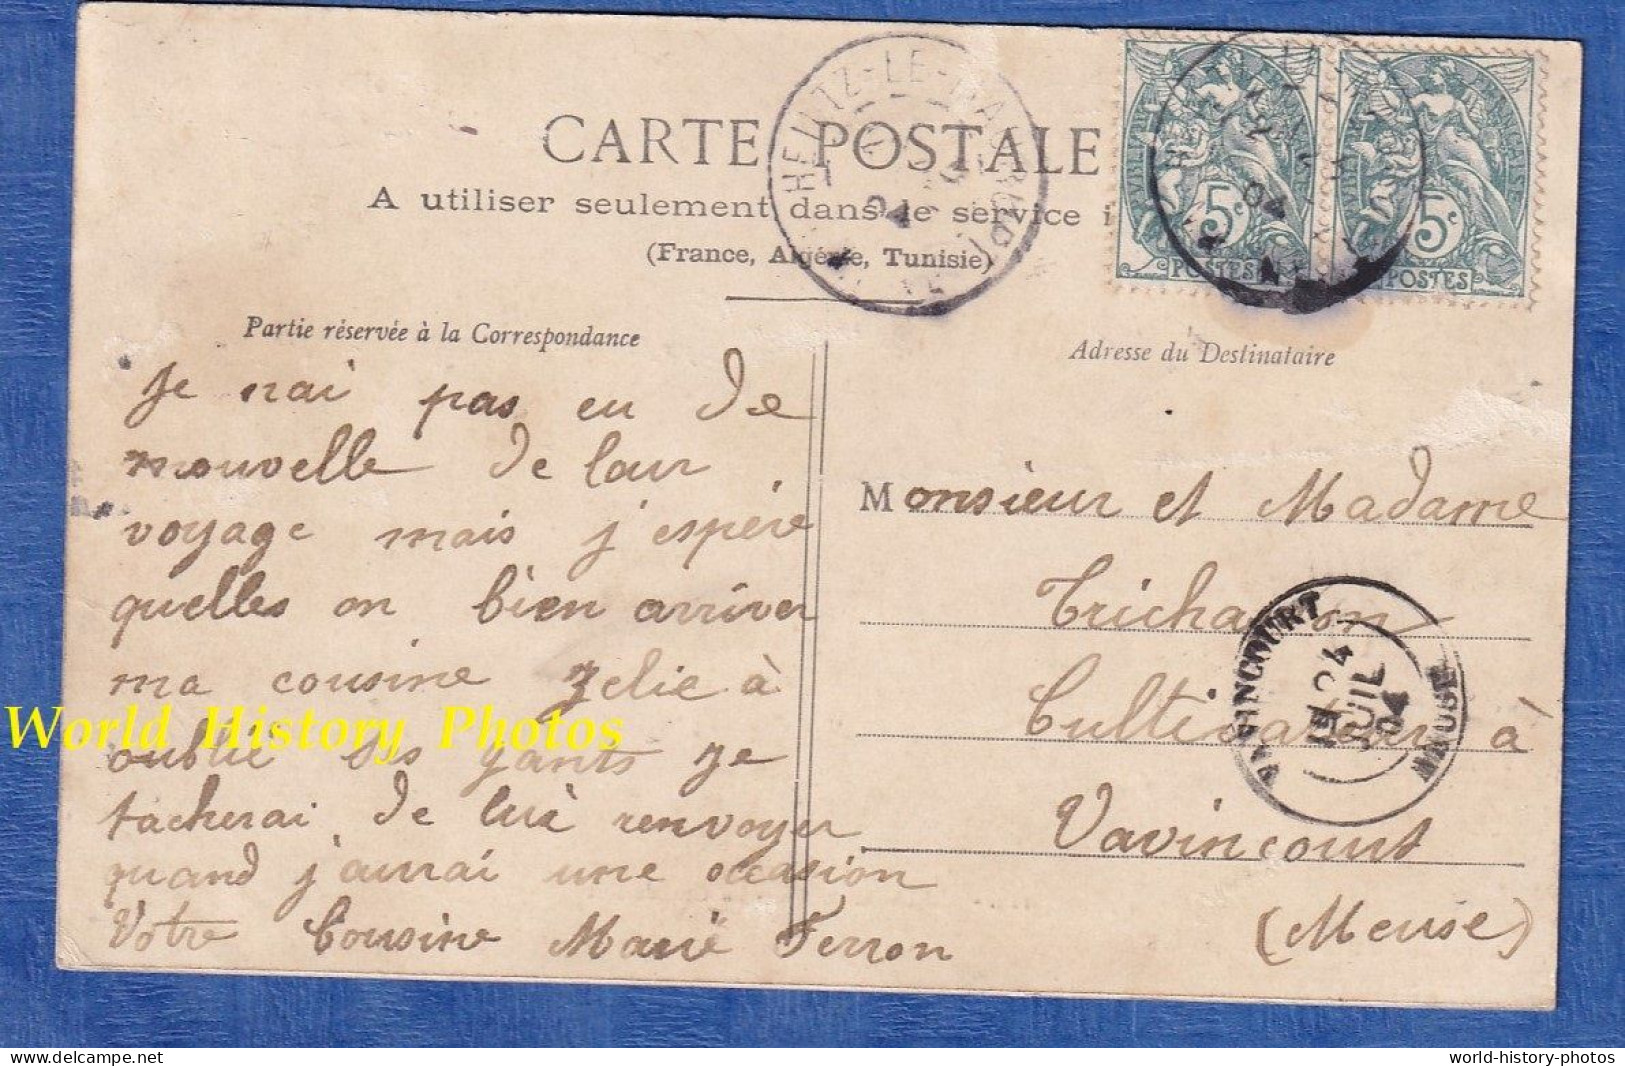 CARTE POSTALE
A utiliser seulement dans le service i
(France, Algérie, Tunisie)
HEILTZ-LE-MAURUPT
04
5c
POSTES
5c
POSTES
04
Partie réservée à la Correspondance
Adresse du Destinataire
Je nai pas eu de
nouvelle de leur
voyage mais j'espère
quelles on bien arriver
ma cousine Zelie à
oublié ses gants je
tacherai de lui renvoyer
quand j'aurai une occasion
Votre Cousine Marie Ferron
Monsieur et Madame
Trichanon
Cultivateur à
Vavincourt
(Meuse)
VAVINCOURT
MEUSE
JUIL
04
World History Photos
delcampe.net
world-history-photos